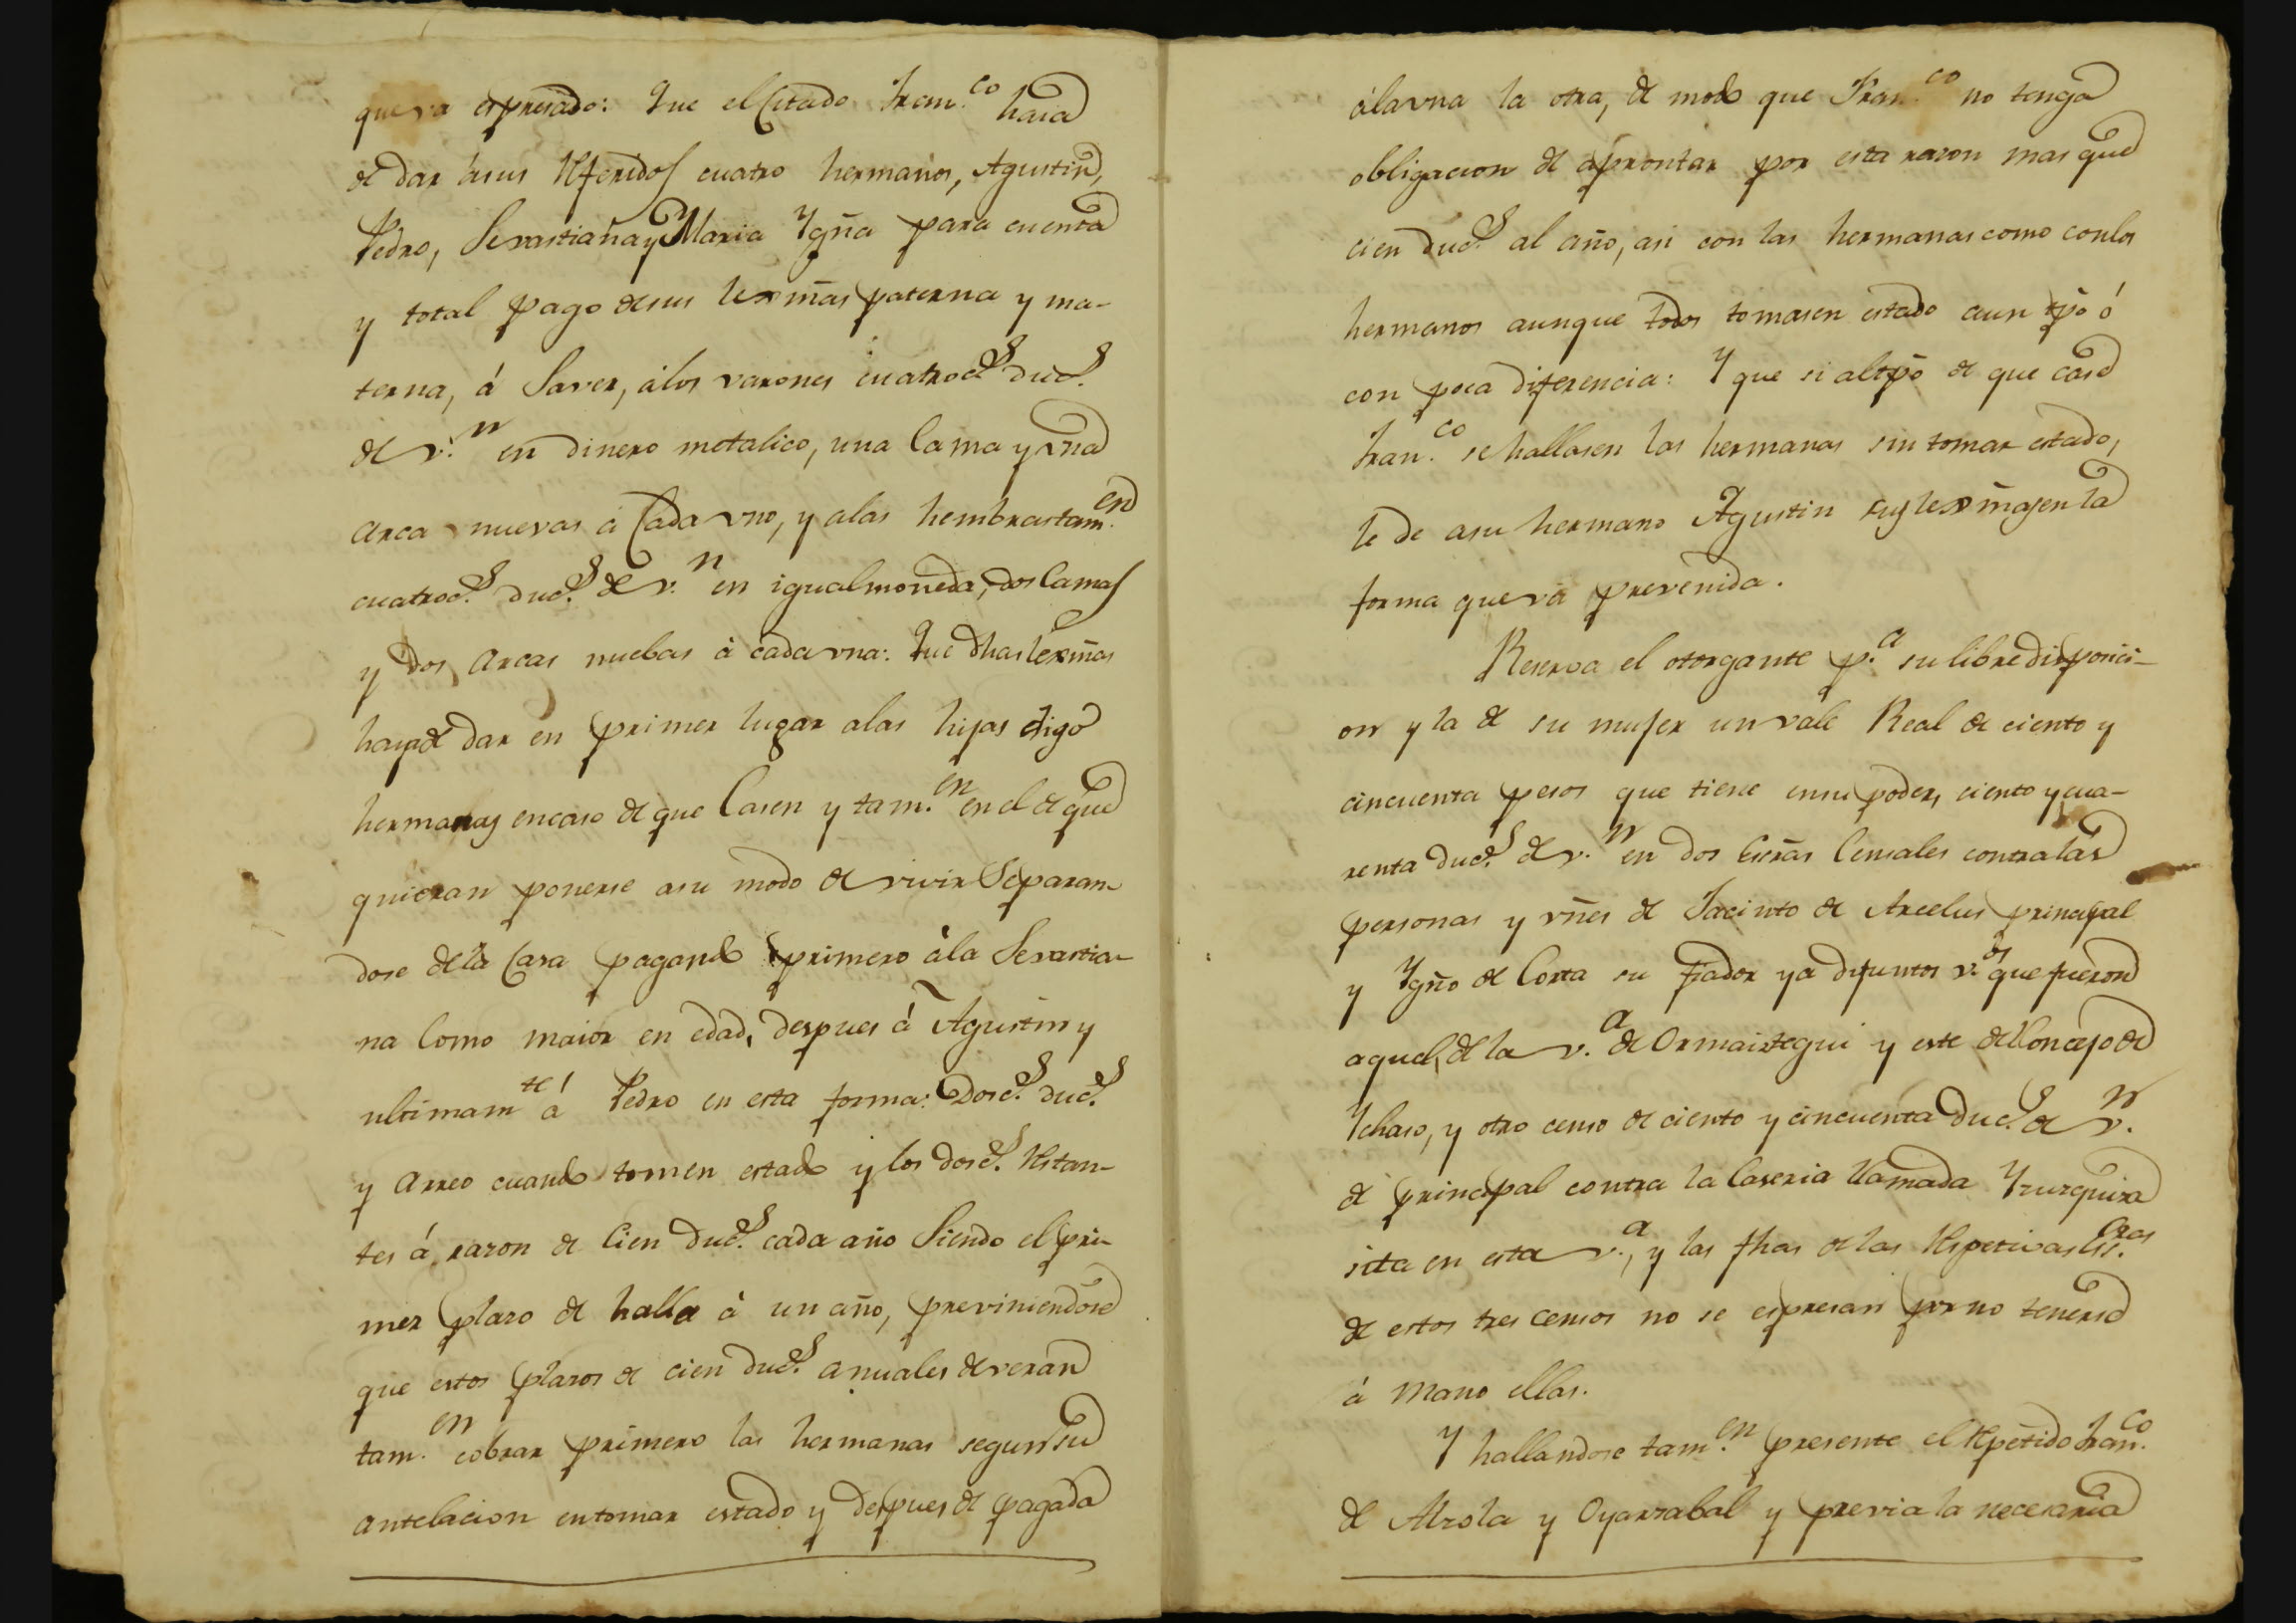 que va espresado: Que el Citado Fran.co haia
de dar à sus Referidos cuatro hermanos, Agustin,
Pedro, Sevastiana y Maria Ygña para cuenta
y total pago de sus lexmas paterna y ma-
terna, á Saver, á los varones cuatroc.s duc.s
de v.n en dinero metalico, una Cama y vna
arca nuevas à Cada vno, y a las hembras tam.en
cuatroc.s duc.s de v.n en igual moneda, dos Camas
y dos Arcas nuebas à cada vna: Que dhas lexmas
haya de dar en primer lugar a las hijas digo
hermanas en caso de que Casen y tam.en en el de que
quieran ponerse a su modo de vivir Separan-
dose de la Casa pagando primero à la Sevastia-
na Como maior en edad, despues á Agustin y
ultimam.te á Pedro en esta forma: Dosc.s duc.s
y Arreo cuando tomen estado y los dosc.s Restan-
tes á razon de Cien duc.s cada año Siendo el pri-
mer plazo de halla à un año, previniendose
que estos plazos de cien duc.s anuales deveran
tam.en cobrar primero las hermanas segun su
antelacion en tomar estado y despues de pagada
á la vna la otra, de modo que Fran.co no tenga
obligacion de aprontar por esta razon mas que
cien duc.s al año, asi con las hermanas como con los
hermanos aunque todos tomasen estado a un tpô ó
con poca diferencia: Y que si al tpô de que case
Fran.co se hallasen las hermanas sin tomar estado,
le de a su hermano Agustin sus lexmas en la
forma que va prevenida.
Reserva el otorgante p.a su libre disposici-
on y la de su mujer un vale Real de ciento y
cincuenta pesos que tiene en su poder, ciento y cua-
renta duc.s de v.n en dos Escrãs Censales contra las
personas y vñes de Jacinto de Arcelus principal
y Ygño de Corta su fiador ya difuntos v.os que fueron
aquel, de la v.a de Ormaiztegui y este del Concejo de
Ychaso, y otro censo de ciento y cincuenta duc.s de v.n
de principal contra la Caseria llamada Yzurquiza
sita en esta v.a, y las fhas de las Respetivas Es.cras
de estos tres censos no se espresan por no tenerse
à mano ellas.
Y hallandose tam.en presente el Repetido Fran.co
de Alzola y Oyarzabal y previa la necesaria